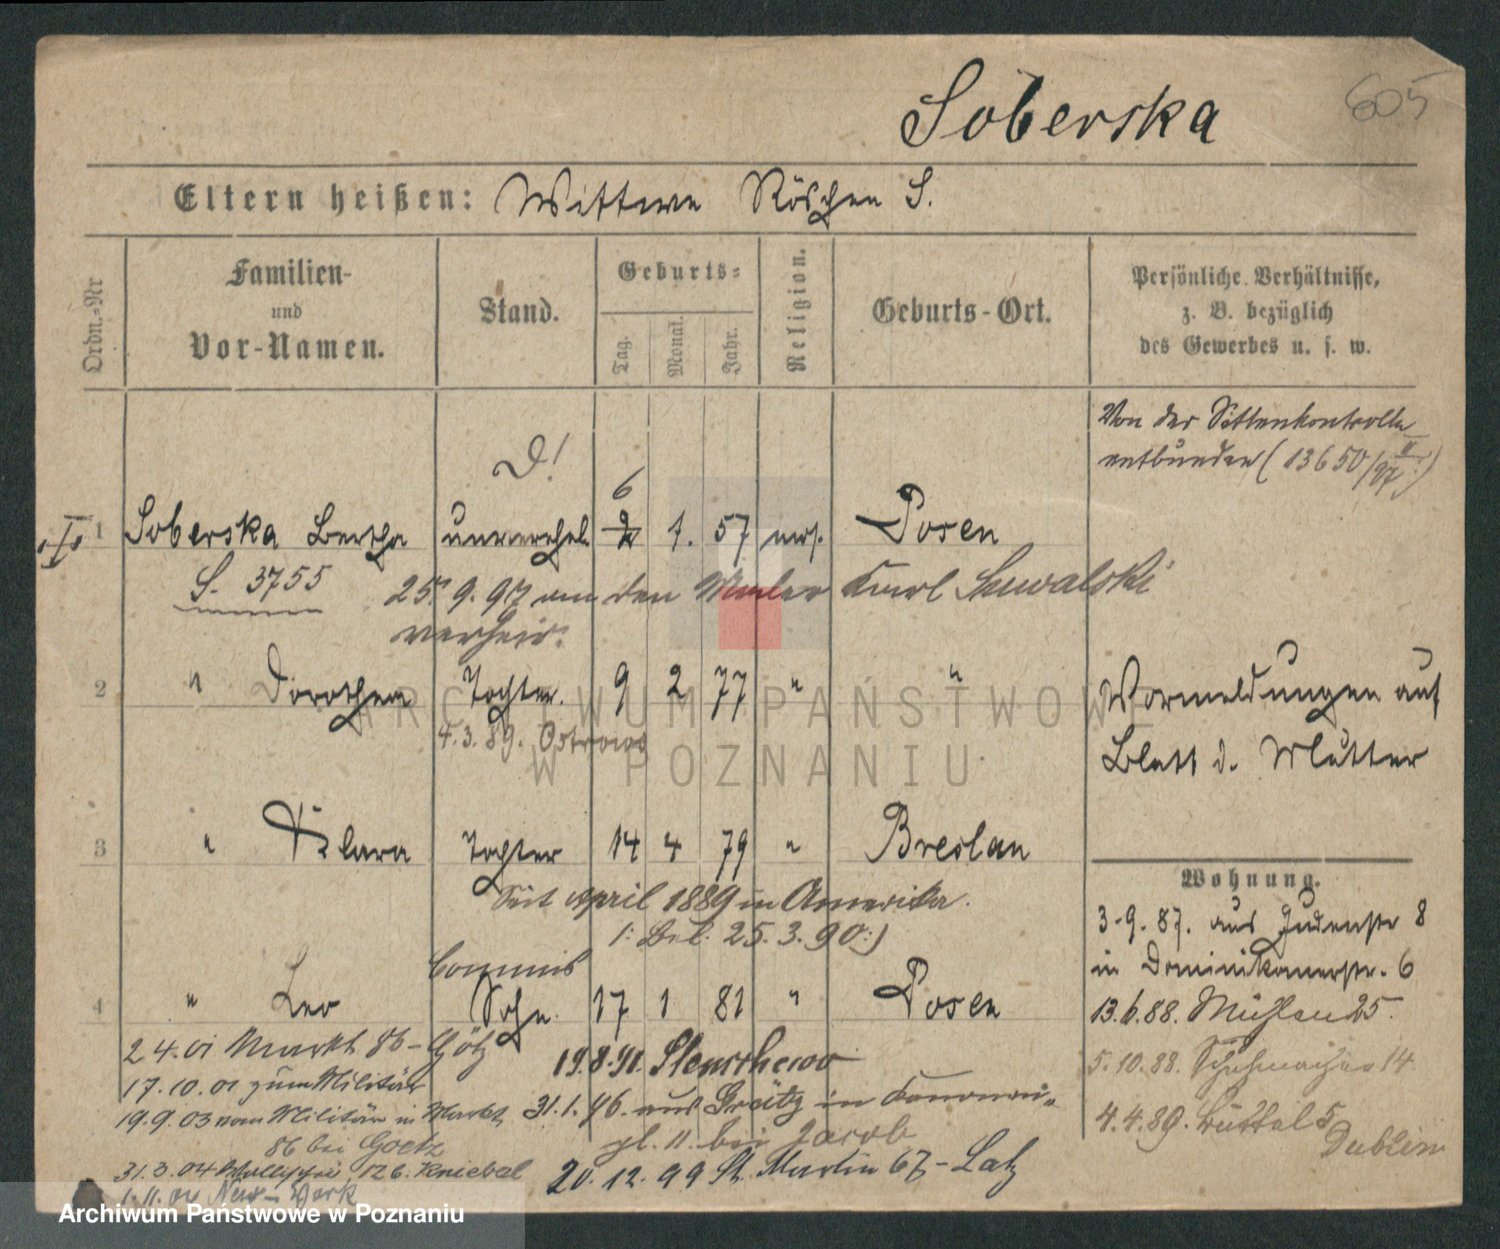 605
Soberska
Eltern heißen: Wittwe Röschen S.
Ordn.-Nr
Familien- und Vor-Namen.
Stand.
Geburts-
Tag. Monat. Jahr.
Religion.
Geburts-Ort.
Persönliche Verhältnisse,
z. B. bezüglich
des Gewerbes u. s. w.
Von der Sittenkontrolle
entbunden (13650/97 II)
D!
6
1 Soberska Bertha unverehel. 2 1. 57 mos. Posen
S. 3755 25. 9. 97 an den Maler Karl Suwalski
verheir.
2 " Dorothea Tochter. 9 2 77 " "
Vormeldungen auf
Blatt d. Mutter
4.3.89. Ostrowo
3 " Klara Tochter 14 4 79 " Breslau
Seit April 1889 in Amerika.
(: Bel. 25. 3. 90 :)
Wohnung.
3.9.87. aus Judenstr 8
in Dominikanerstr. 6
13.6.88. Mühlen 25.
5.10.88. Schuhmacher 14
4.4.89. Büttel 5
Dublin
Commis
4 " Leo Sohn. 17 1 81 " Posen
2 4.01 Markt 86 - Götz
17.10.01 zum Militär
19.9.03 vom Militär in Markt
86 bei Goetz
31.3.04 Wallischei 126. Kniebel
1.11.04 New-York
19.8.91. Stenschewo
31.1.96. aus Grätz in Kanonen-
pl. 11. bei Jacob
20.12.99 St. Martin 67 - Latz
ARCHIWUM PAŃSTWOWE
W POZNANIU
Archiwum Państwowe w Poznaniu